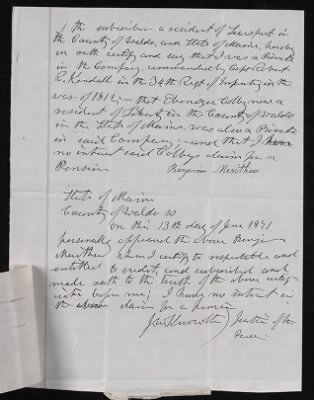 I the subscriber a resident of Searsport in
the County of Waldo, and State of Maine, hereby
on oath certify and say that I was a Private
in the Company commanded by Capt Robert
R. Kendall in the 34th Regt of Infantry in the
war of 1812,- that Ebenezer Colby now a
resident of Liberty in the County of Waldo
in the State of Maine, was also a Private
in said Company,- and that I have
no interest said Colby's claim for a
Pension Benjamin Merithew
State of Maine
County of Waldo ss
On this 13th day of June 1871
personally appeared the above Benj
Merithew whom I certify to respectable and
entitled to credit, and subscribed and
made oath to the truth of the above
before me; I have no interest in
the above claim for a pension
Justice of the
Peace